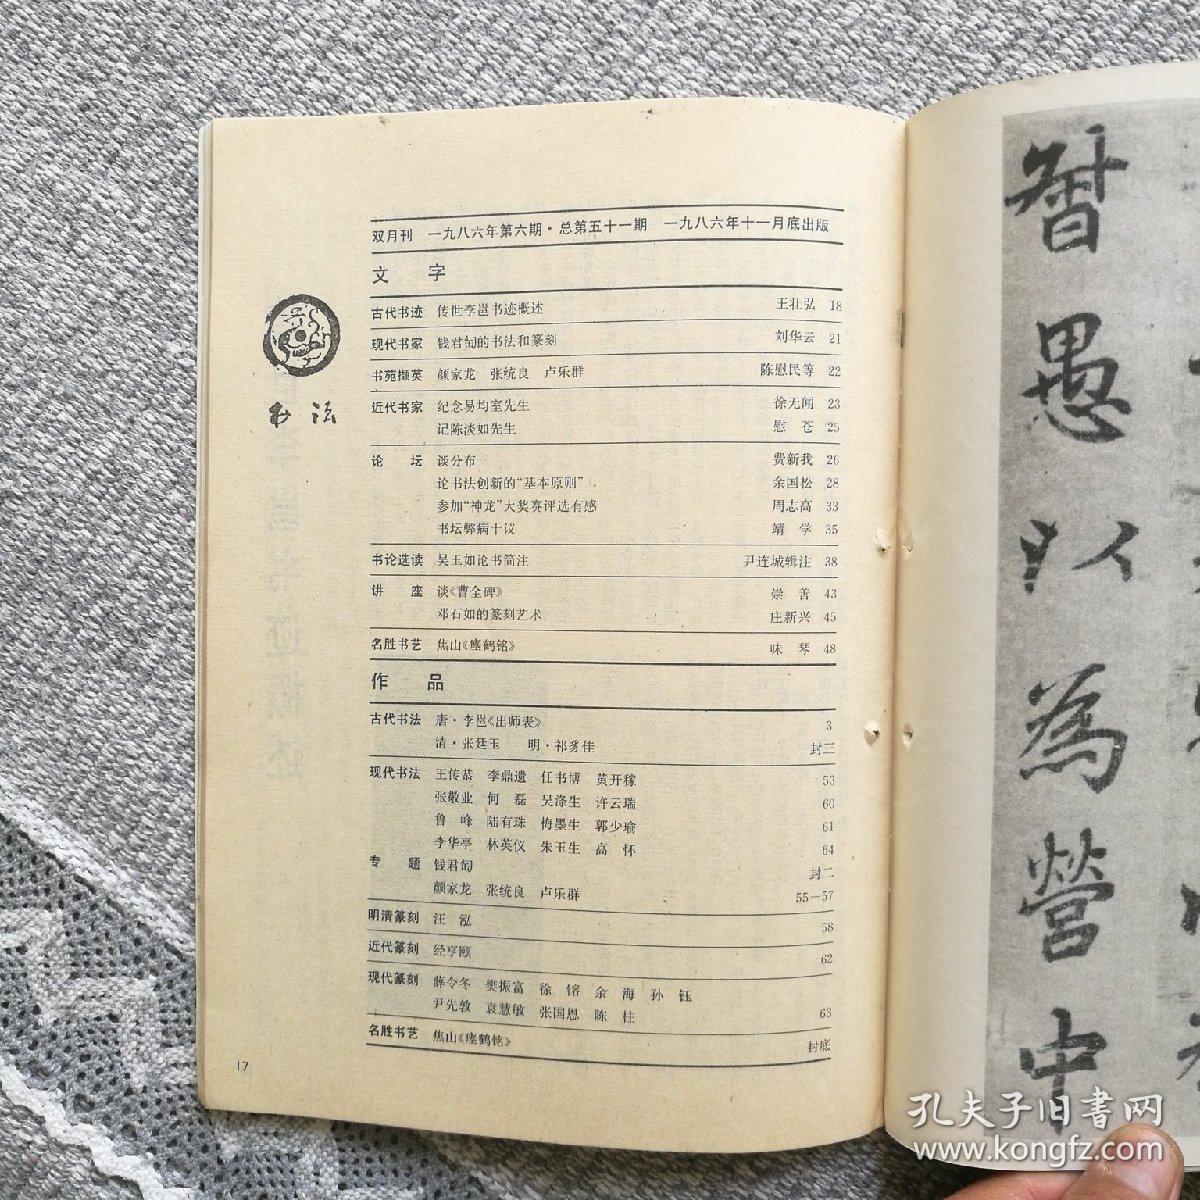 双月刊 一九八六年第六期·总第五十一期 一九八六年十一月底出版
文 字
古代书迹 传世李邕书迹概述 王壮弘 18
现代书家 钱君匋的书法和篆刻 刘华云 21
书苑撷英 颜家龙 张统良 卢乐群 陈慰民等 22
近代书家 纪念易均室先生 徐无闻 23
记陈淡如先生 慰苍 25
论坛 谈分布 费新我 26
论书法创新的“基本原则” 余国松 28
参加“神龙”大奖赛评选有感 周志高 33
书坛弊病十议 靖学 35
书论选读 吴玉如论书简注 尹连城辑注 38
讲座 谈《曹全碑》 崇善 43
邓石如的篆刻艺术 庄新兴 45
名胜书艺 焦山《瘗鹤铭》 味琴 48
作 品
古代书法 唐·李邕《出师表》 3
清·张廷玉 明·祁豸佳 封三
现代书法 王传恭 李鼎遗 任书博 黄开稼 53
张敬业 何磊 吴涤生 许云瑞 60
鲁峰 陆有珠 梅墨生 郭少瑜 61
李华亭 林英仪 朱玉生 高怀 64
专题 钱君匋 封二
颜家龙 张统良 卢乐群 55—57
明清篆刻 汪泓 58
近代篆刻 经亨颐 62
现代篆刻 薛令冬 樊振富 徐镕 余海 孙钰
尹先敦 袁慧敏 张国恩 陈柱 63
名胜书艺 焦山《瘗鹤铭》 封底
书法
17
智愚以為營中
孔夫子旧书网
www.kongfz.com